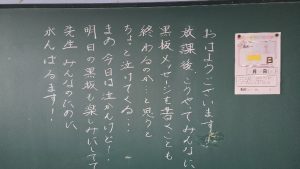 おはようございます。
放課後こうやってみんなに
黒板メッセージを書くことも
終わるのか…と思うと
ちょっと泣けてくる…
まあ今日は泣かんけど!
明日の黒板も楽しみにしてて
先生みんなのために
がんばるます!
月
日